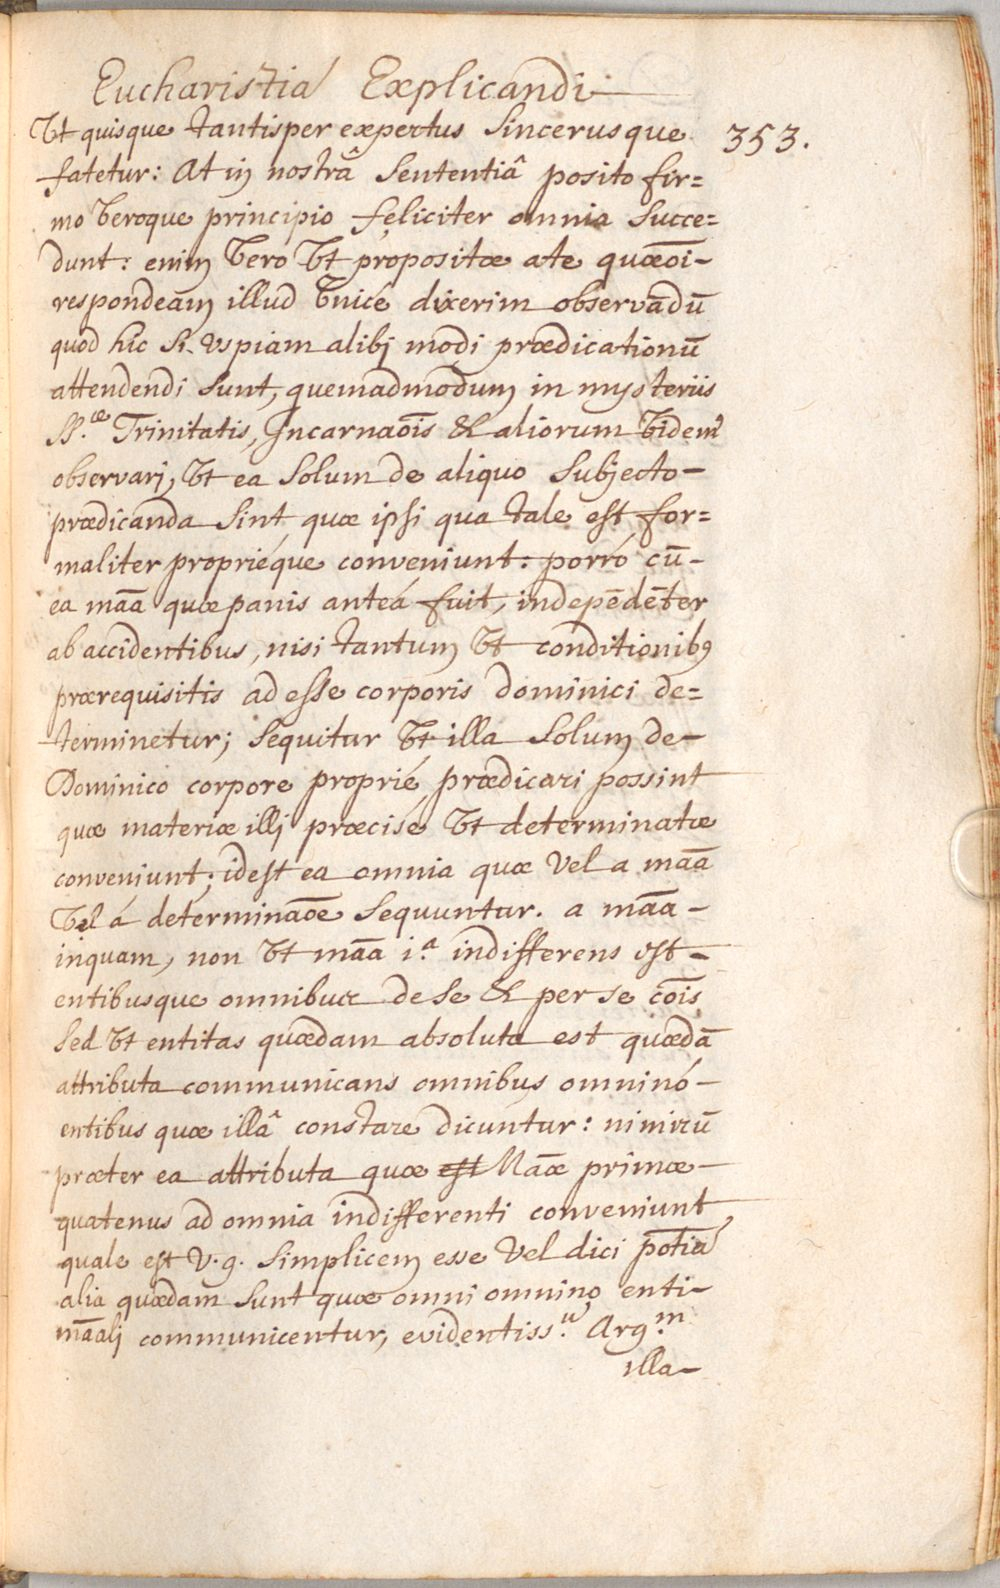 Eucharistiâ Explicandi
Vt quisque tantisper expertus Sincerusque 353.
fatetur: At in nostrâ Sententiâ posito fir=
mo veroque principio feliciter omnia Succe=
dunt: enim vero Vt propositæ ate quæōi-
respondeam illud Vnicé dixerim observādū
quod hic Si Vspiam alibi modi prædicationū
attendendi Sunt, quemadmodum in mysteriis
SS.æ Trinitatis, Incarnaōis & aliorum Videm9
observari, Vt ea Solum de aliquo Subjecto-
prædicanda Sint quæ ipsi qua tale est for=
maliter propriéque conveniunt: porró cū-
ea māa quæ panis anteá fuit, indepēdēter
ab accidentibus, nisi tantum Vt conditionib9
prærequisitis ad esse corporis dominici de=
terminetur; Sequitur Vt illa Solum de-
Dominico corpore proprié prædicari possint
quæ materiæ illi præcisé Vt determinatæ
conveniunt; idest ea omnia quæ Vel a māa
Vel á determinaōe Sequuntur. a māa-
inquam, non Vt māa i.a indifferens est-
entibusque omnibus de Se & per se cōis
Sed Vt entitas quædam absoluta est quædā
attributa communicans omnibus omninó-
entibus quæ illâ constare dicuntur: nimirū
præter ea attributa quæ est Māæ primæ-
quatenus ad omnia indifferenti conveniunt
quale est V.g. Simplicem esse Vel dici pōtiā
alia quædam Sunt quæ omni omnino enti-
māali communicentur, evidentiss.u Arg.m
illa-